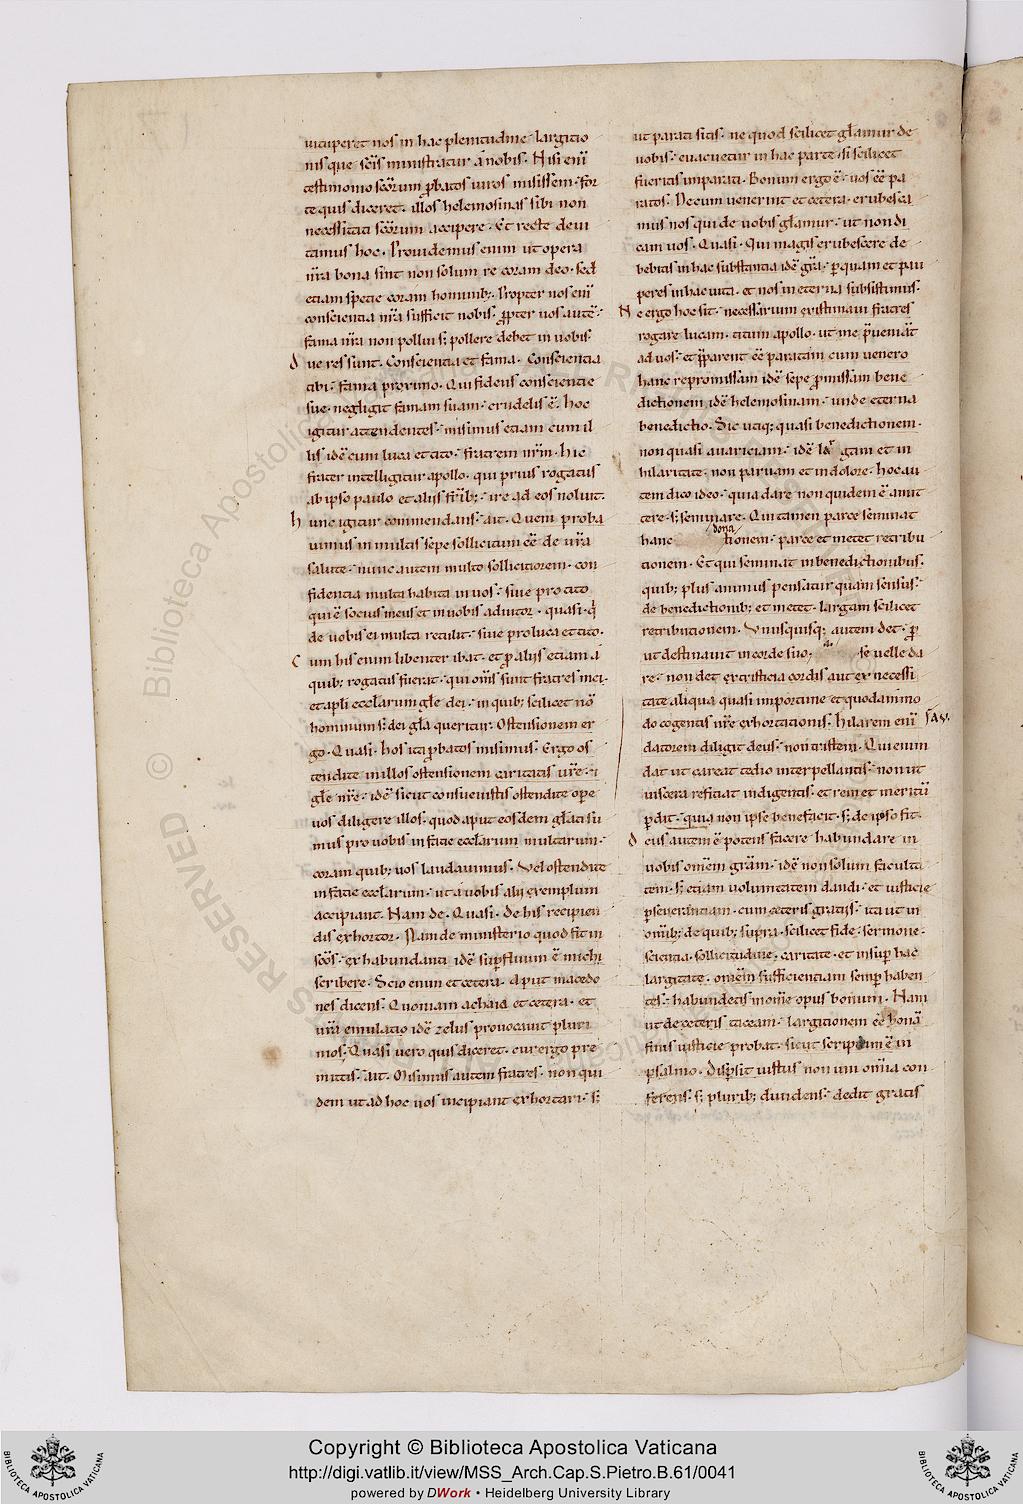 uituperet nos in hac plenitudine largitio
nis que sc̄is ministratur a nobis. Nisi eni̅
testimonio sc̄orum ꝓbatos uiros misissem. for
te quis diceret. illos helemosinas sibi non
necessitati sc̄orum accipere. Et recte deui
tamus hoc. Prouidemus enim ut opera
nr̄a bona sint non solum re coram deo. sed
etiam specie coram hominib;. Propter nos eni̅
conscientia nr̄a sufficit nobis. ꝓpter uos aute̅.
fama nr̄a non pollui s; pollere debet in uobis.
due res sunt. Conscientia et fama. Conscientia
tibi. fama proximo. Qui fidens conscientie
sue. negligit famam suam. crudelis e̅. hoc
igitur attendentes. misimus etiam cum il
lis ide̅ cum luca et tito. fratrem nr̄m. hic
frater intelligitur apollo. qui prius rogatus
ab ipso paulo et alijs fr̄ib;. ire ad eos noluit.
hunc igitur commendans. ait. Quem proba
uimus in multis sepe sollicitum e̅e̅ de ur̄a
salute. nunc autem multo sollicitiorem. con
fidentia multa habita in uos. siue pro tito
qui e̅ socius meus et in uobis adiutor. quasi. q̄
de uobis ei multa retulit. siue pro luca et tito.
cum his enim libenter ibat. et ꝓ alijs etiam a
quib; rogatus fuerat. qui om̄s sunt fratres mei.
et apl̄i eccl̄arum gl̄e dei. in quib; scilicet no̅
hominum s; dei gl̄a queritur. Ostensionem er
go. Quasi. hos ita ꝓbatos misimus. Ergo os
tendite in illos ostensionem caritatis ur̄e. 7
gl̄e nr̄e. ide̅ sicut consueuistis ostendite ope̅
uos diligere illos. quod aput eosdem gl̄ati su
mus pro uobis in facie eccl̄arum multarum.
coram quib; uos laudauimus. Vel ostendite
in facie eccl̄arum. ut a uobis alij exemplum
accipiant. Nam de. Quasi. De his recipien
dis exhortor. Nam de ministerio quod fit in
sc̄os. ex habundanti ide̅ suꝑfluum e̅ michi
scribere. Scio enim et cetera. Aput macedo
nes dicens. Quoniam achaia et cetera. et
ur̄a emulatio ide̅ zelus prouocauit pluri
mos. Quasi uero quis diceret. cur ergo pre
mittis. ait. Misimus autem fratres. non qui
dem ut ad hoc uos incipiant exhortari. s;
ut parati sitis. ne quod scilicet gl̄amur de
uobis. euacuetur in hac parte. si scilicet
fueritis imparati. Bonum ergo e̅. uos e̅e̅ pa
ratos. Ne cum uenerint et cetera. erubesca
mus nos qui de uobis gl̄amur. ut non di
cam uos. Quasi. Qui magis erubescere de
bebitis in hac substantia ide̅ gr̄a. ꝑ quam et pau
peres in hac uita. et nos in eterna subsistimus.
Ne ergo hoc sit. necessarium existimaui fratres
rogare lucam. titum apollo. ut me p̄ueniāt
ad uos. et p̄parent e̅e̅ paratam cum uenero
hanc repromissam ide̅ sepe promissam bene
dictionem ide̅ helemosinam. unde eterna
benedictio. Sic utiq; quasi benedictionem.
non quasi auariciam. ide̅ lar gam et in
hilaritate. non paruam et in dolore. hoc au
tem dico ideo. quia dare non quidem e̅ amit
tere. s; seminare. Qui tamen parce seminat
dona
hanc tionem. parce et metet retribu
tionem. Et qui seminat in benedictionibus.
quib; plus animus pensatur quam sensus.
de benedictionib; et metet. largam scilicet
retributionem. Vnusquisq; autem det. ꝓ
ut destinauit in corde suo. se uelle da
re. non det ex tristicia cordis aut ex necessi
tate aliqua quasi importune et quodammo
do cogentis ur̄e exhortationis. hilarem eni̅
datorem diligit deus. non tristem. Qui enim
dat ut careat tedio interpellantis. non ut
uiscera reficiat indigentis. et rem et meritū
ꝑdit. quia non ipse benefacit. s; de ipso fit.
Deus autem e̅ potens facere habundare in
uobis omēm gr̄am. ide̅ non solum faculta
tem. s; etiam uoluntatem dandi. et iusticie
ꝑseuerantiam. cum ceteris gratijs. ita ut in
om̄ib; de quib; supra. scilicet fide. sermone.
scientia. sollicitudine. caritate. et insuꝑ hac
largitate. omēm sufficientiam semꝑ haben
tes. habundetis in om̄e opus bonum. Nam
ut de ceteris taceam. largitionem e̅e̅ bonā
finis iusticie probat. sicut scriptum e̅ in
psalmo. Dispersit iustus non uni om̄ia con
ferens. s; plurib; diuidens. dedit gratis